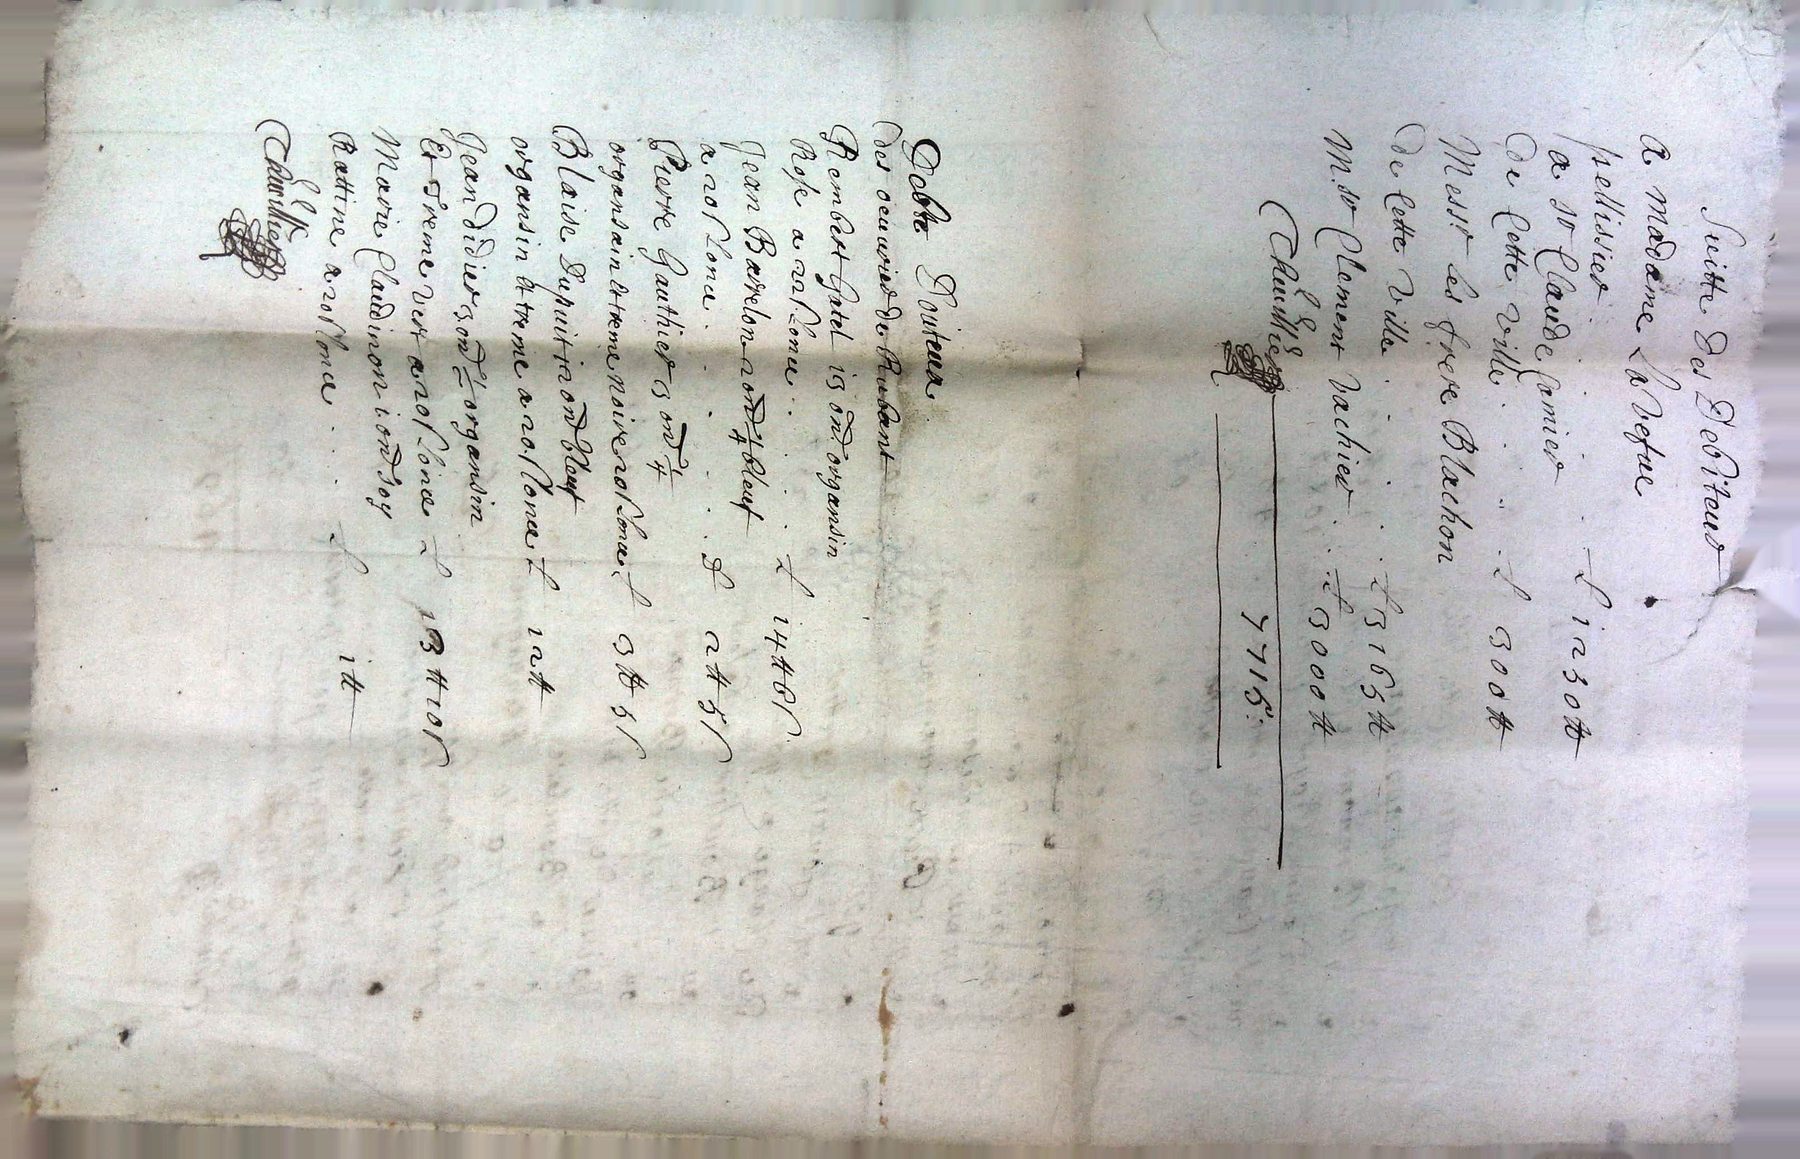 Suitte des Debiteurs
a madame La vefue
pellissier . . . £ 1230 ₶
a Sr Claude Gamier
de Cette ville . . . £ 300 ₶
Messrs les frere Blachon
de Cette ville . . . £ 3165 ₶
M. Sr Clement vachier . . £ 3000 ₶
7715
Debte Douteux
des ouuries de Rubant
Rembert Gatel 13 onc organsin
Rose a 22s Lonce . . . £ 14₶ 6s
Jean Barrelon 2 onc 1/4 bleuf
a 20s Lonce . . . £ 2₶ 5s
Pierre Gauthier 3 onc 1/4
organsain et treme noire 20s Lonce £ 3₶ 5s
Blaise Dupuit 12 onc bleuf
organsin et treme a 20s Lonce £ 12₶
Jean didier 3 onc 1/2 organsin
Et treme vert a 20s Lonce £ 3₶ 10s
Marie Claudinon 1 onc soy
Rattine a 20s Lonce . . £ 1₶